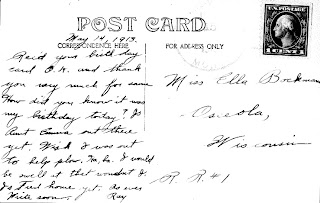 POST CARD
May 14, 1913.
CORRESPONDENCE HERE
FOR ADDRESS ONLY
Rec'd your birthday
card O.K. and thank
you very much for same
How did you know it was
my birthday today? Is
Aunt Emma out there
yet. Wish I was out
to help plow. Ha, ha. I would
be swell at that wouldn't I.
Is Fred home yet. As ever
Write soon. Ray
Miss Ella Bockman
Osceola,
Wisconsin
R. R. #1